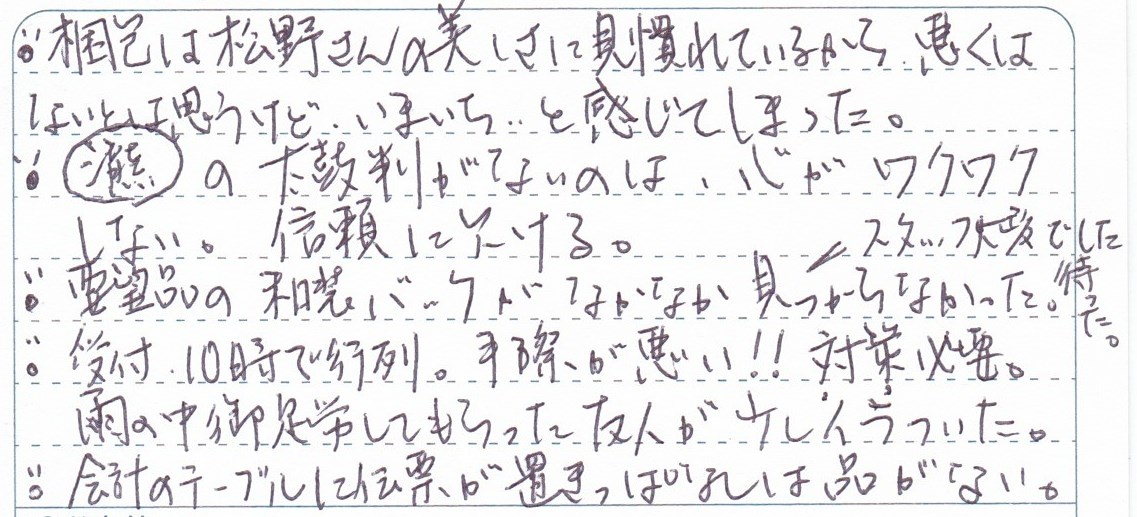 梱包は松野さんの美しさに見慣れているから悪くは
ないとは思うけど、いまいち‥と感じてしまった。
の太鼓判がでないのは、心がワクワク
しない。信頼に欠ける。
スタッフ大変でした
要望品の和装バックがなかなか見つからなかった。待った。
受付、10時で行列。手際が悪い!!対策必要。
雨の中御足労してもらった友人が少しイラついた。
会計のテーブルに伝票が置きっぱなしは品がない。